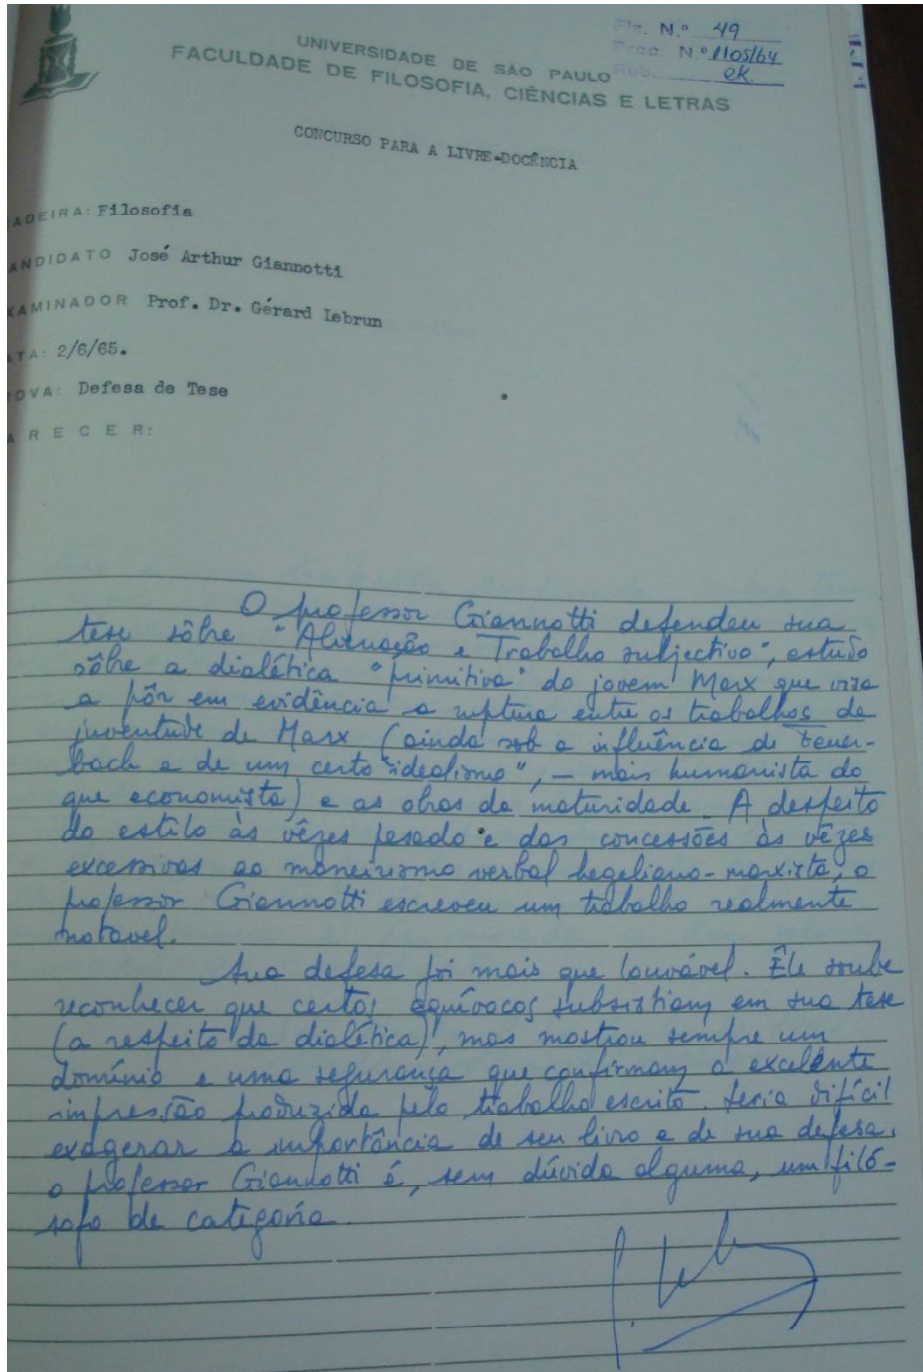 Fls. N.º 49
Proc. N.º 1105/64
Rub. ek.
UNIVERSIDADE DE SÃO PAULO
FACULDADE DE FILOSOFIA, CIÊNCIAS E LETRAS
CONCURSO PARA A LIVRE-DOCÊNCIA
CADEIRA: Filosofia
CANDIDATO José Arthur Giannotti
EXAMINADOR Prof. Dr. Gérard Lebrun
DATA: 2/6/65.
PROVA: Defesa de Tese
PARECER:
O professor Giannotti defendeu sua
tese sôbre "Alienação e Trabalho subjectivo", estudo
sôbre a dialética "primitiva" do jovem Marx que visa
a pôr em evidência a ruptura entre os trabalhos da
juventude de Marx (ainda sob a influência de Feuer-
bach e de um certo "idealismo", – mais humanista do
que economista) e as obras da maturidade. A despeito
do estilo às vêzes pesado e das concessões às vêzes
excessivas ao maneirismo verbal hegeliano-marxista, o
professor Giannotti escreveu um trabalho realmente
notavel.
Sua defesa foi mais que louvável. Êle soube
reconhecer que certos equívocos subsistiam em sua tese
(a respeito da dialética), mas mostrou sempre um
domínio e uma segurança que confirmam a excelente
impressão produzida pelo trabalho escrito. Seria difícil
exagerar a importância de seu livro e de sua defesa.
o professor Giannotti é, sem dúvida alguma, um filó-
sofo de categoria.